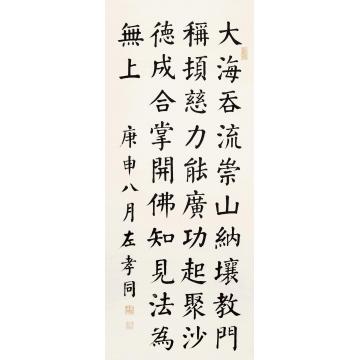 大海吞流崇山納壤教門
稱頓慈力能廣功起聚沙
德成合掌開佛知見法為
無上
庚申八月左孝同